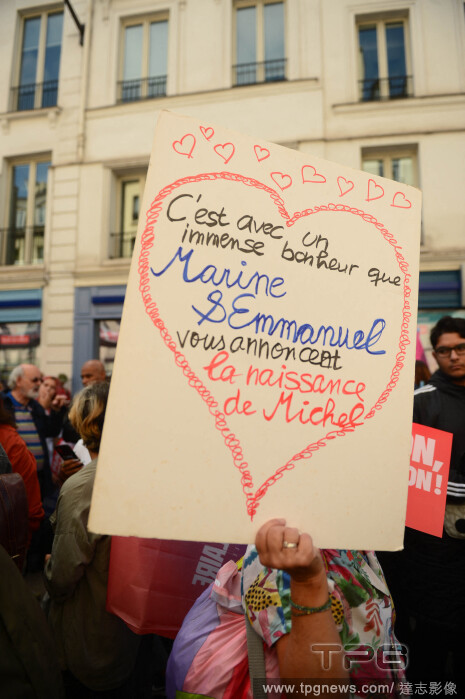 C'est avec un
immense bonheur que
Marine
& Emmanuel
vous annoncent
la naissance
de Michel
ON,
ON !
TPG
www.tpgnews.com/ 達志影像